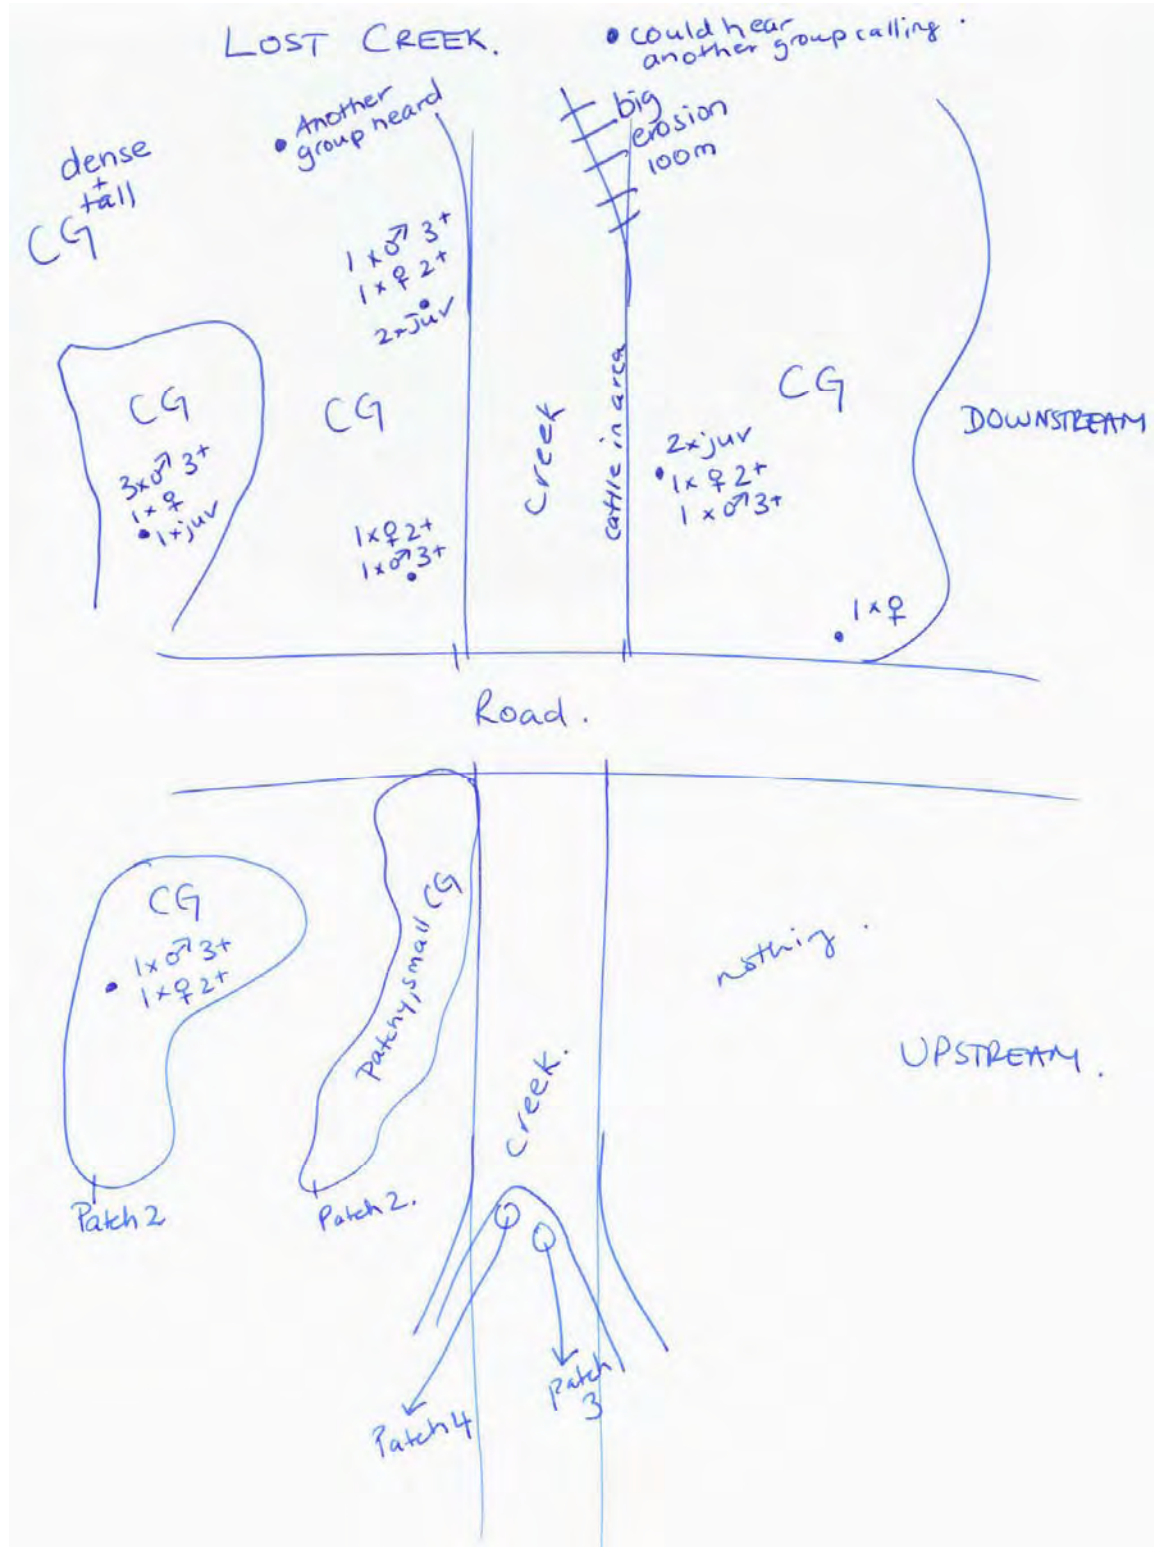 LOST CREEK.
• could hear
another group calling.
• Another
group heard
big
erosion
100m
dense
+
tall
CG
1 x ♂ 3+
1 x ♀ 2+
2 x juv
CG
3 x ♂ 3+
1 x ♀
• 1 x juv
CG
1 x ♀ 2+
1 x ♂ 3+
Creek
cattle in area
CG
2 x juv
• 1 x ♀ 2+
1 x ♂ 3+
DOWNSTREAM
• 1 x ♀
Road.
CG
1 x ♂ 3+
• 1 x ♀ 2+
Patch 2
Patchy, small CG
Patch 2.
Creek.
nothing.
UPSTREAM.
Patch 4
Patch
3